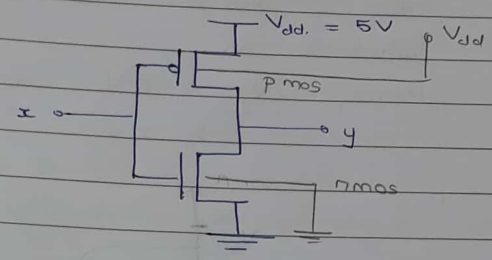 Vdd. = 5V
Vdd
pmos
x
y
nmos